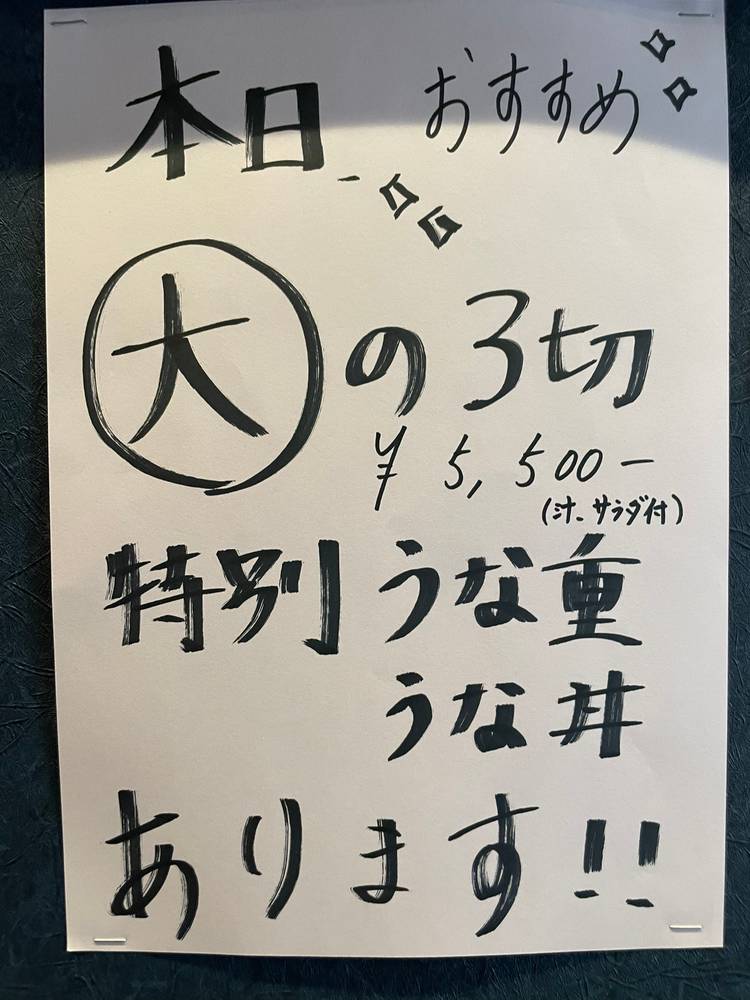 本日 おすすめ
大の3切
¥5,500-
(汁、サラダ付)
特別 うな重
うな丼
あります!!